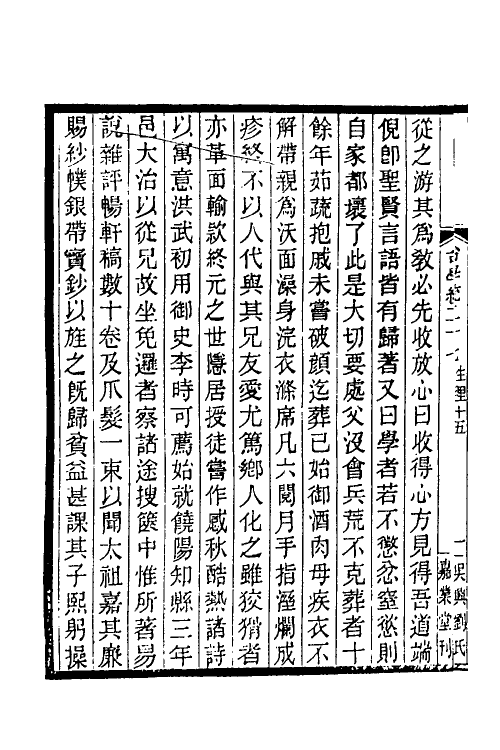 從之游其爲敎必先收放心曰收得心方見得吾道端
倪卽聖賢言語皆有歸著又曰學者若不懲忿窒慾則
自家都壞了此是大切要處父沒會兵荒不克葬者十
餘年茹蔬抱戚未嘗破顏迄葬已始御酒肉母疾衣不
解帶親爲沃面澡身浣衣滌席凡六閱月手指溼爛成
疹終不以人代與其兄友愛尤篤鄉人化之雖狡猾者
亦革面輸款終元之世隱居授徒嘗作感秋酷熱諸詩
以寓意洪武初用御史李時可薦始就饒陽知縣三年
邑大治以從兄故坐免邏者察諸途搜篋中惟所著易
說雜評暢軒稿數十卷及爪髮一束以聞太祖嘉其廉
賜紗幞銀帶寶鈔以旌之旣歸貧益甚課其子熙躬操
台學統
十五
吳興劉氏
嘉業堂刊